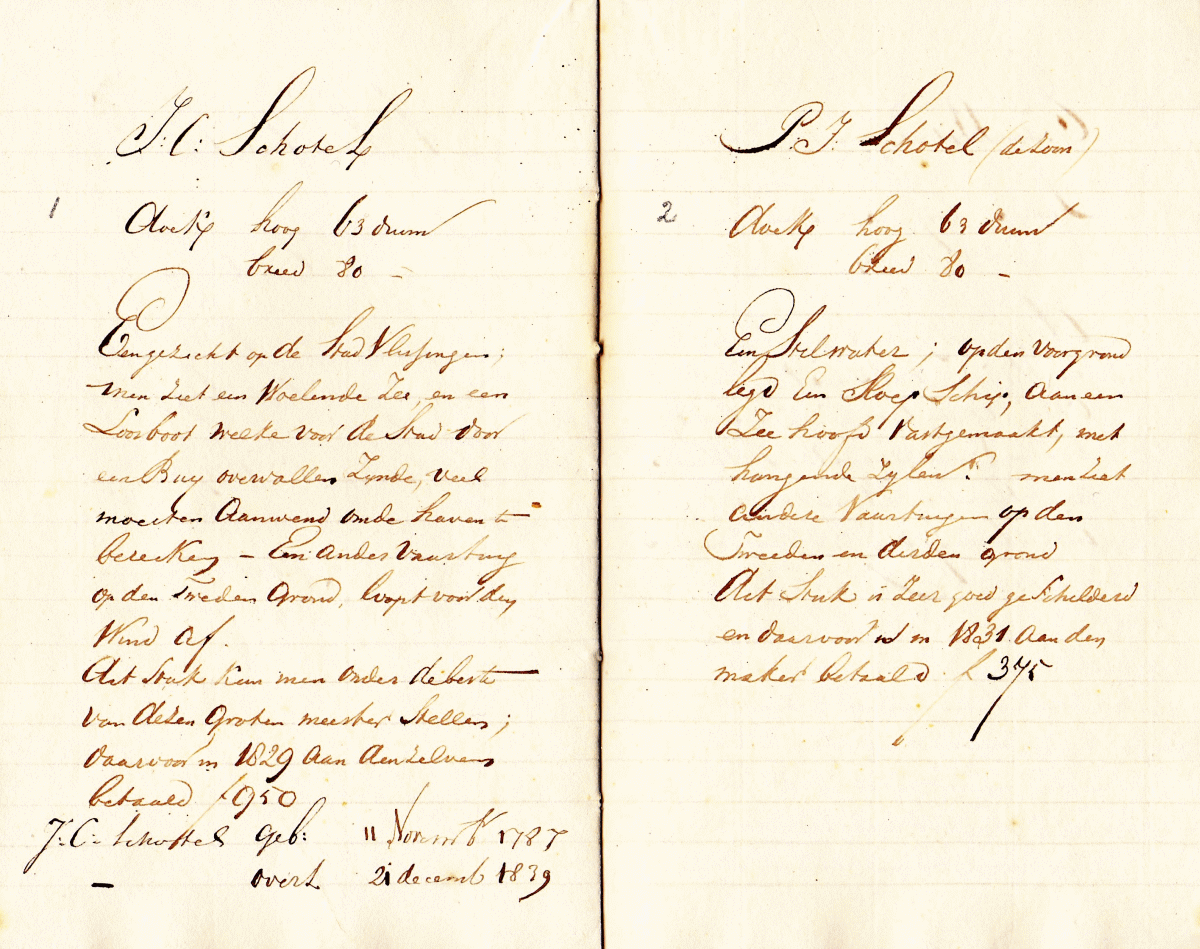 J: C: Schotel
1
doek hoog 63 duim
breed 80 -
Een gezicht op de Stad Vlissingen;
men ziet een Woelende Zee, en een
Loosboot welke voor de Stad door
een Buy overvallen Zynde, veel
moeiten Aanwend om de haven te
bereiken - Een ander Vaartuig
op den Tweden Grond, loopt voor den
Wind Af.
Dit Stuk kan men onder de beste
van dezen Groten meester Stellen;
daarvoor in 1829 Aan denzelven
betaald f 950
J: C: Schottel Geb: 11 Novemb 1787
- overl 21 decemb 1839
P. J. Schotel (de Zoon)
2
doek hoog 63 duim
breed 80 -
Een Stil water; op den Voorgrond
legd Een Sloep Schip, Aan een
Zee hoofd Vastgemaakt, met
hangende Zylen: men ziet
andere Vaartuigen op den
Tweeden en derden grond
Dit Stuk is Zeer goed geschilderd
en daarvoor in 1831 Aan den
maker betaald f 375